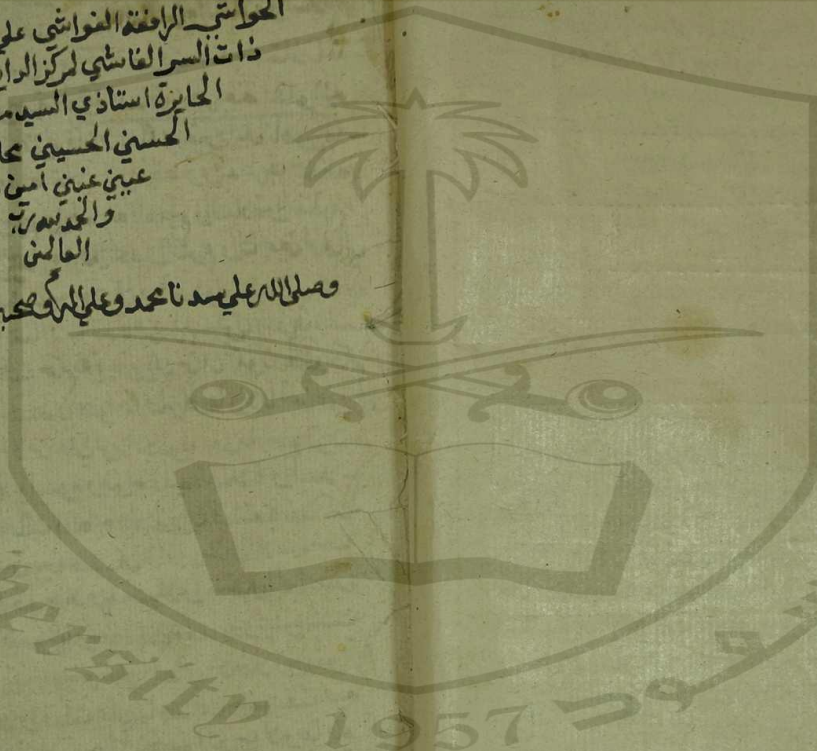 الحواشي الرافعة الغواشي علي
ذات السر الفاشي لمركز الداي
الحايزة استاذي السيد م
الحسني الحسيني محا
عيبي عنيني امين
والحمد لله رب
العالمين
وصلى الله علي سيدنا محمد وعلي اله وصحبه
versity 1957 سعود